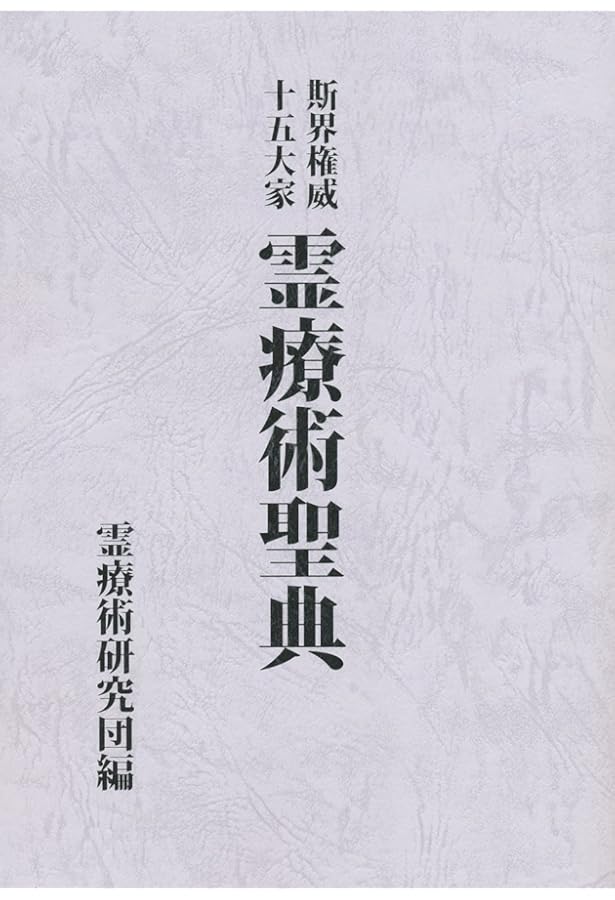 斯界権威
十五大家
霊療術聖典
霊療術研究団編